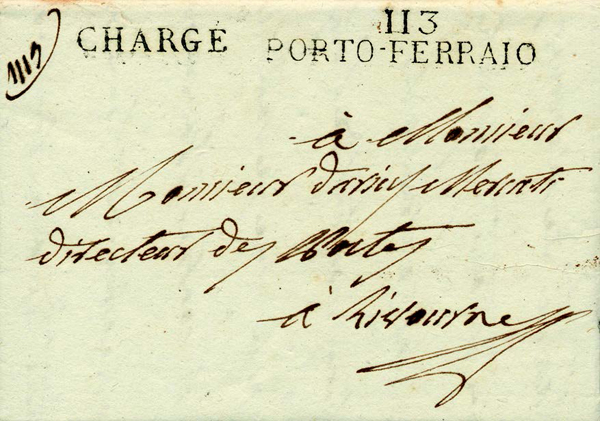 CHARGÉ
113
PORTO-FERRAIO
à Monsieur
Monsieur Mercati
directeur des Postes
à Livourne